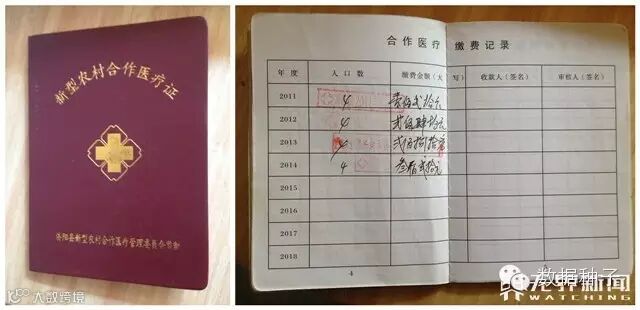 新型农村合作医疗证
济阳县新型农村合作医疗管理委员会
合作医疗 缴费记录
年度 人口数 缴费金额(大写) 收款人(签名) 审核人(签名)
2011 4 壹佰贰拾元
2012 4 贰佰肆拾元
2013 4 贰佰捌拾元
2014 4 叁佰贰拾元
2015
2016
2017
2018
4
5
大数跨境
数据种子
新闻
WATCHING